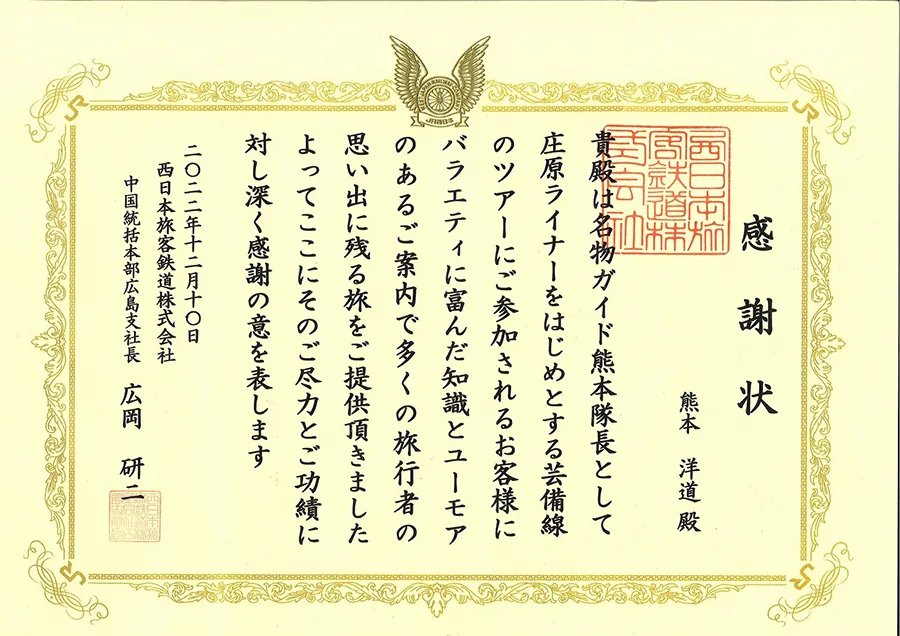 感謝状
熊本 洋道 殿
貴殿は名物ガイド熊本隊長として
庄原ライナーをはじめとする芸備線
のツアーにご参加されるお客様に
バラエティに富んだ知識とユーモア
のあるご案内で多くの旅行者の
思い出に残る旅をご提供頂きました
よってここにそのご尽力とご功績に
対し深く感謝の意を表します
二〇二二年十二月十〇日
西日本旅客鉄道株式会社
中国統括本部広島支社長 広岡 研二
西日本旅
客鉄道株
式会社
JR西日本